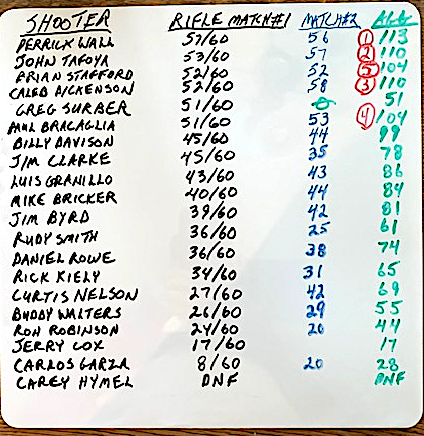 SHOOTER RIFLE MATCH#1 MATCH#2 AGG
DERRICK WALL 57/60 56 ① 113
JOHN TAFOYA 53/60 57 ② 110
BRIAN STAFFORD 52/60 52 ⑤ 104
CALEB DICKENSON 52/60 58 ③ 110
GREG SURBER 51/60 51
PAUL BRACAGLIA 51/60 53 ④ 104
BILLY DAVISON 45/60 44
JIM CLARKE 45/60 35 78
LUIS GRANILLO 43/60 43 86
MIKE BRICKER 40/60 44 84
JIM BYRD 39/60 42 81
RUDY SMITH 36/60 25 61
DANIEL ROWE 36/60 38 74
RICK KIELY 34/60 31 65
CURTIS NELSON 27/60 42 69
BUDDY WALTERS 26/60 29 55
RON ROBINSON 24/60 20 44
JERRY COX 17/60 17
CARLOS GARZA 8/60 20 28
CAREY HYMEL DNF DNF